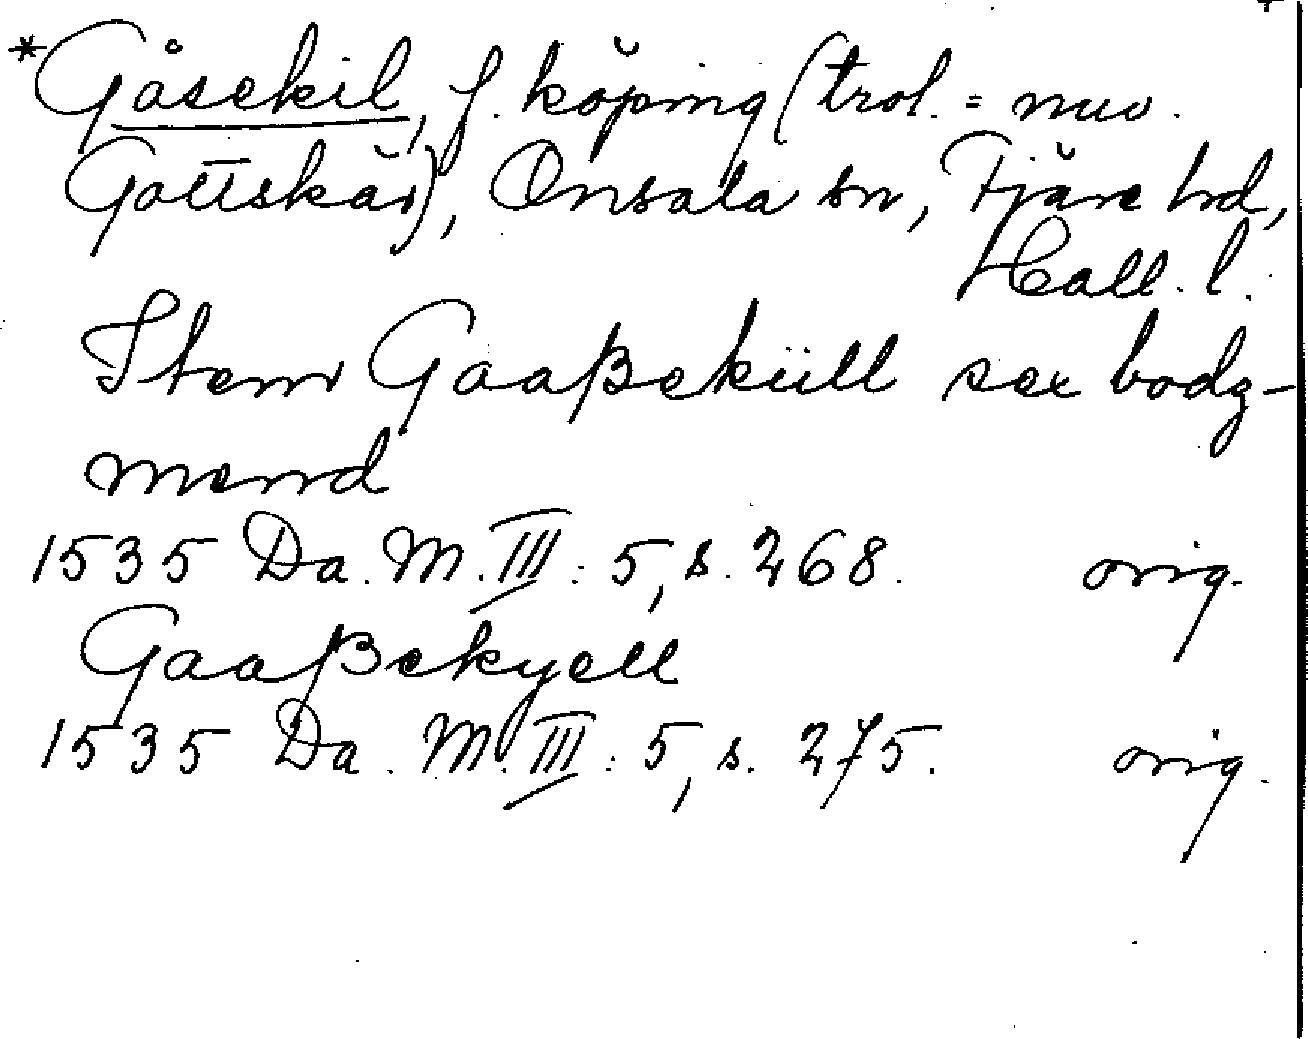 *Gåsekil, f. köping (trol. = nuv.
Gottskär), Onsala sn, Fjäre hd,
Hall. l.
Item Gaaßeküll sex bodz-
mend
1535 Da. M. III : 5, s. 268. orig.
Gaaßekyell
1535 Da. M. III : 5, s. 275. orig.